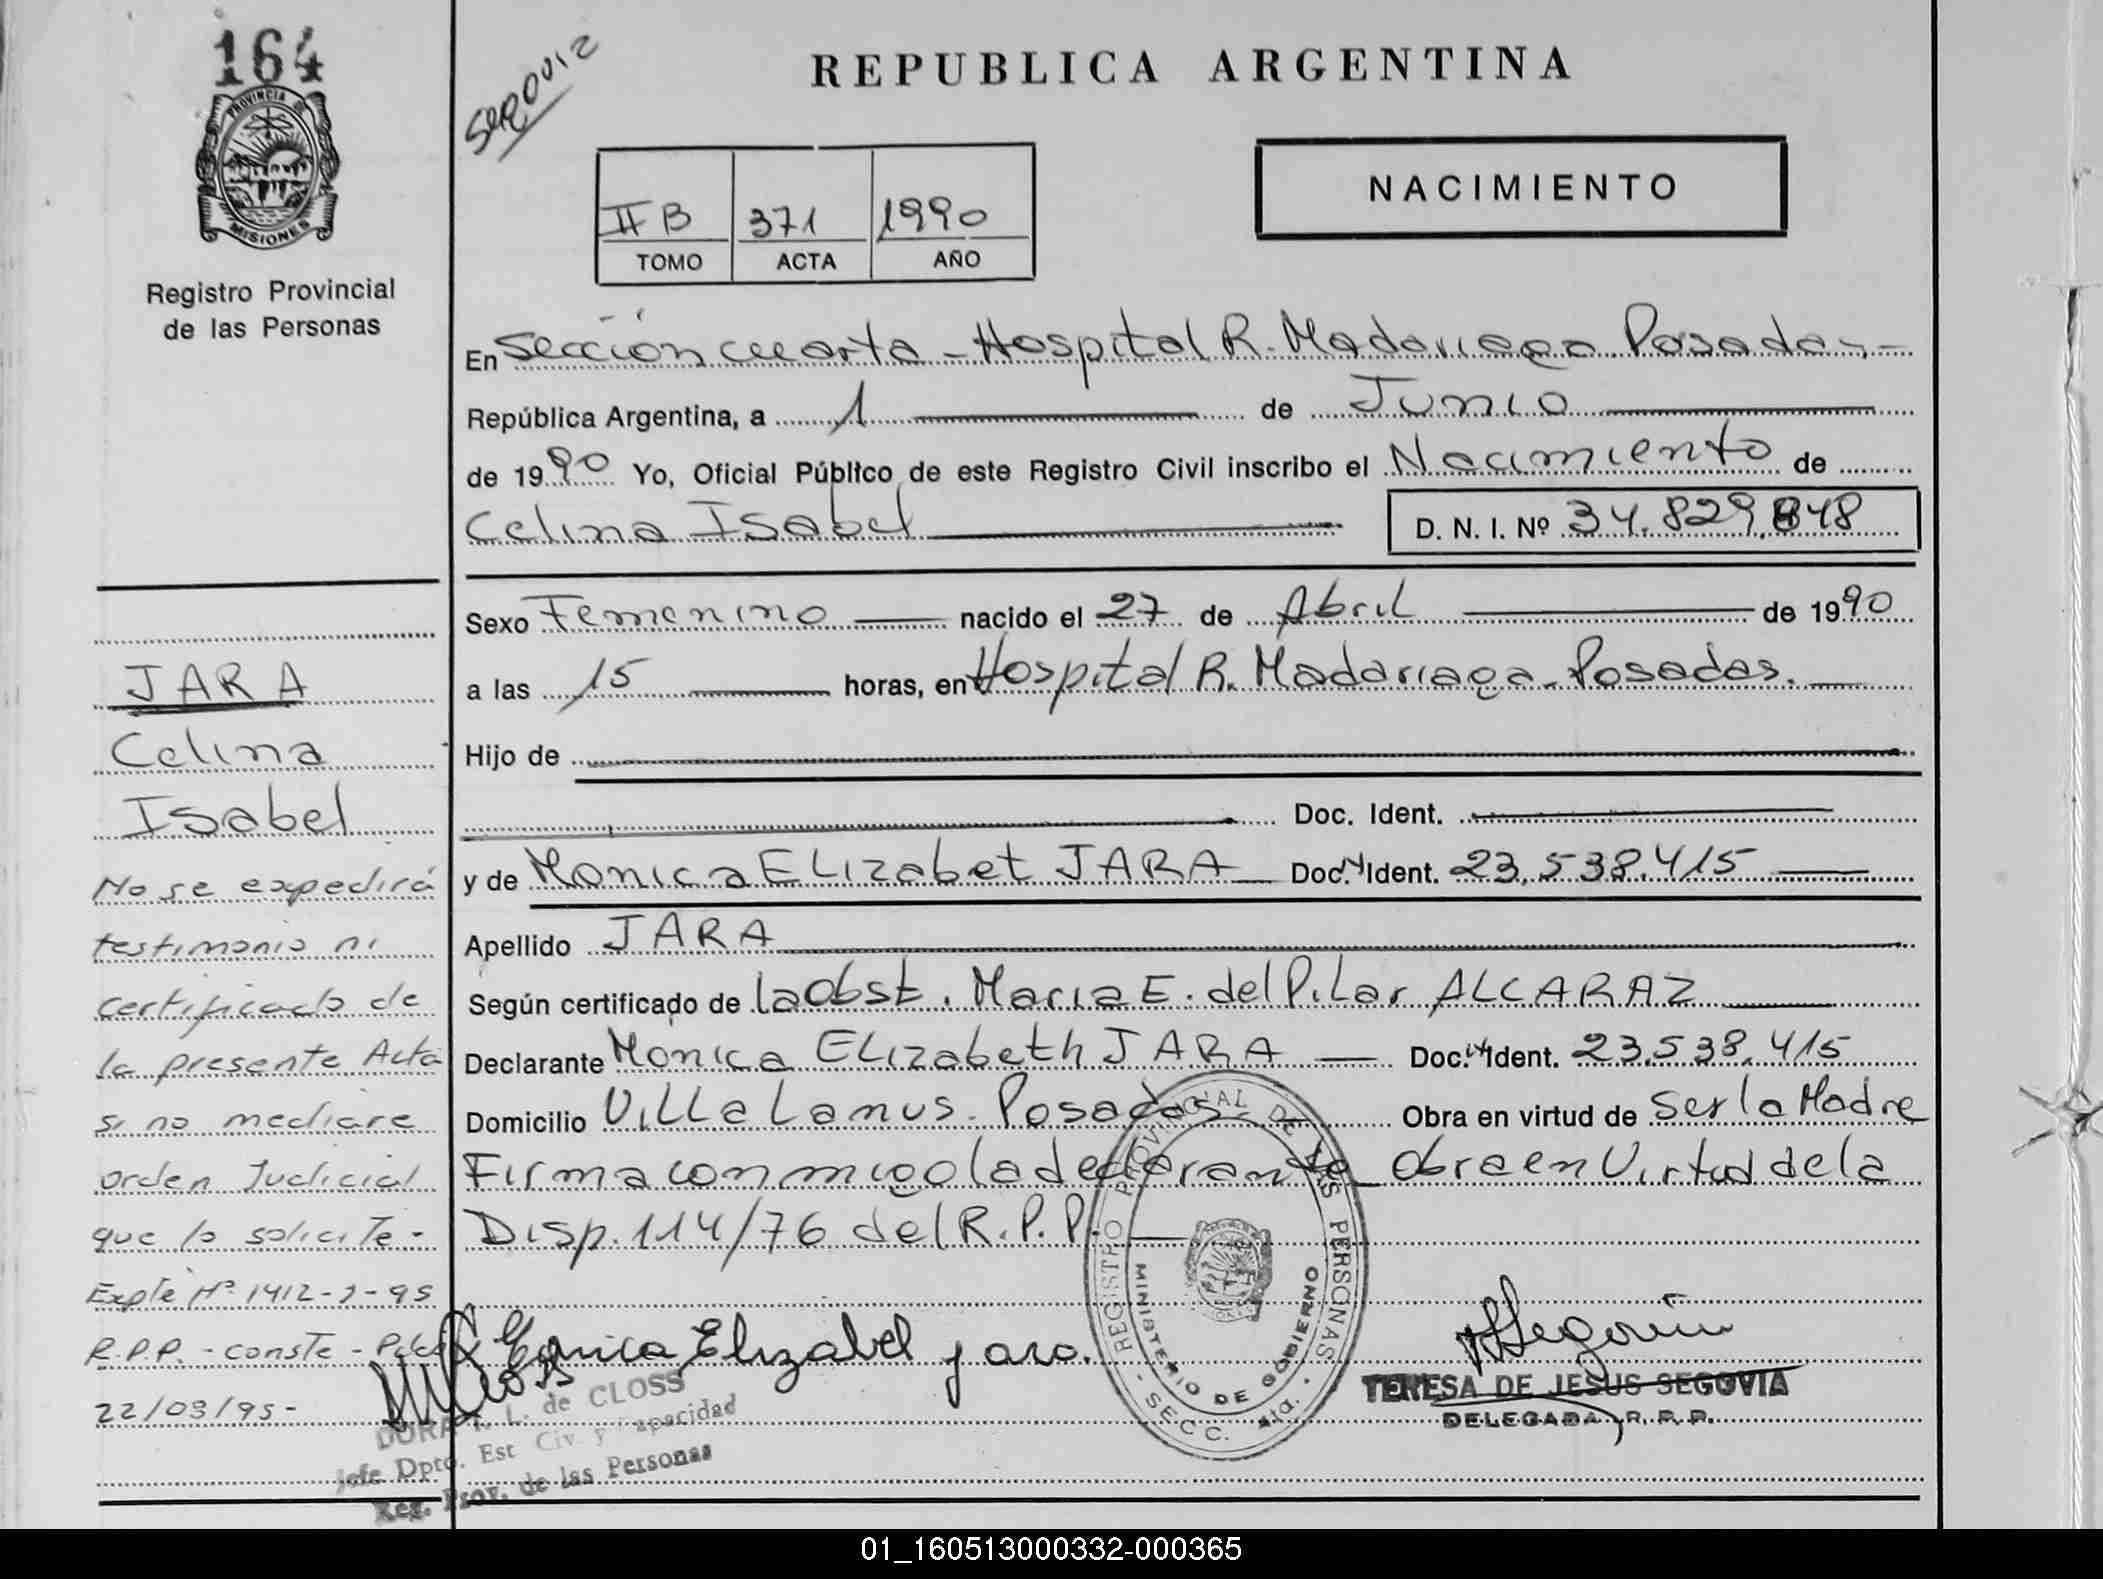 164
PROVINCIA DE
MISIONES
Registro Provincial
de las Personas
REPUBLICA ARGENTINA
NACIMIENTO
II B 371 1990
TOMO ACTA AÑO
En Sección cuarta - Hospital R. Madariaga Posadas.-
República Argentina, a 1 de Junio
de 1990 Yo, Oficial Público de este Registro Civil inscribo el Nacimiento de
Celina Isabel D. N. I. Nº 34.829.848
Sexo Femenino nacido el 27 de Abril de 1990
a las 15 horas, en Hospital R. Madariaga - Posadas.
Hijo de
Doc. Ident.
y de Monica ELizabet JARA Doc. Ident. 23.538.415
Apellido JARA
Según certificado de la Obst. Maria E. del Pilar ALCARAZ
Declarante Monica ELizabeth JARA Doc. Ident. 23.538.415
Domicilio Villa Lanus - Posadas - Obra en virtud de Ser la Madre
Firma conmigo la declarante - Obra en Virtud de la
Disp. 114/76 del R.P.P.
JARA
Celina
Isabel
No se expedirá
testimonio ni
certificado de
la presente Acta
si no mediare
orden Judicial
que lo solicite -
Expte Nº 1412-J-95
R.P.P. - conste -
22/03/95-
Monica Elizabel jara.
de CLOSS
Jefe Dpto. Est Civ. y Capacidad
Reg. Prov. de las Personas
REGISTRO PROVINCIAL DE LAS PERSONAS
MINISTERIO DE GOBIERNO
- SECC. 4ta. -
Segovia
TERESA DE JESUS SEGOVIA
DELEGADA R.P.P.
01_160513000332-000365